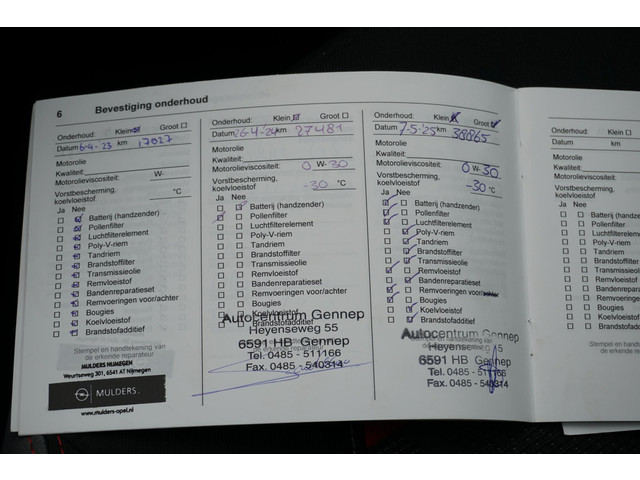 6 Bevestiging onderhoud
Onderhoud: Klein Groot
Datum 6-4-23 km 17027
Motorolie
Kwaliteit:
Motorolieviscositeit: W-
Vorstbescherming, koelvloeistof °C
Ja Nee
Batterij (handzender)
Pollenfilter
Luchtfilterelement
Poly-V-riem
Tandriem
Brandstoffilter
Transmissieolie
Remvloeistof
Bandenreparatieset
Remvoeringen voor/achter
Bougies
Koelvloeistof
Brandstofadditief
Stempel en handtekening van
de erkende reparateur
MULDERS NIJMEGEN
Weurtseweg 301, 6541 AT Nijmegen
MULDERS
www.mulders-opel.nl
Onderhoud: Klein Groot
Datum 26-4-24 km 27481
Motorolie
Kwaliteit:
Motorolieviscositeit: 0 W-30
Vorstbescherming,
koelvloeistof -30 °C
Ja Nee
Batterij (handzender)
Pollenfilter
Luchtfilterelement
Poly-V-riem
Tandriem
Brandstoffilter
Transmissieolie
Remvloeistof
Bandenreparatieset
Remvoeringen voor/achter
Bougies
Koelvloeistof
Brandstofadditief
Autocentrum Gennep
Heyenseweg 55
6591 HB Gennep
Tel. 0485 - 511166
Fax. 0485 - 540314
Onderhoud: Klein Groot
Datum 7-5-25 km 38865
Motorolie
Kwaliteit:
Motorolieviscositeit: 0 W-30
Vorstbescherming,
koelvloeistof -30 °C
Ja Nee
Batterij (handzender)
Pollenfilter
Luchtfilterelement
Poly-V-riem
Tandriem
Brandstoffilter
Transmissieolie
Remvloeistof
Bandenreparatieset
Remvoeringen voor/achter
Bougies
Koelvloeistof
Brandstofadditief
Stempel en handtekening van
de erkende reparateur
Autocentrum Gennep
6591 HB Gennep
Tel. 0485 - 511166
Fax. 0485 - 540314
Onderhoud: Klein
Datum km
Motorolie
Kwaliteit:
Motorolieviscositeit:
Vorstbescherming,
koelvloeistof
Ja Nee
Batterij (han
Pollenfilter
Luchtfiltere
Poly-V-riem
Tandriem
Brandstoffil
Transmissi
Remvloeist
Bandenrep
Remvoerin
Bougies
Koelvloeis
Brandstofa
Stempel en h
de erken